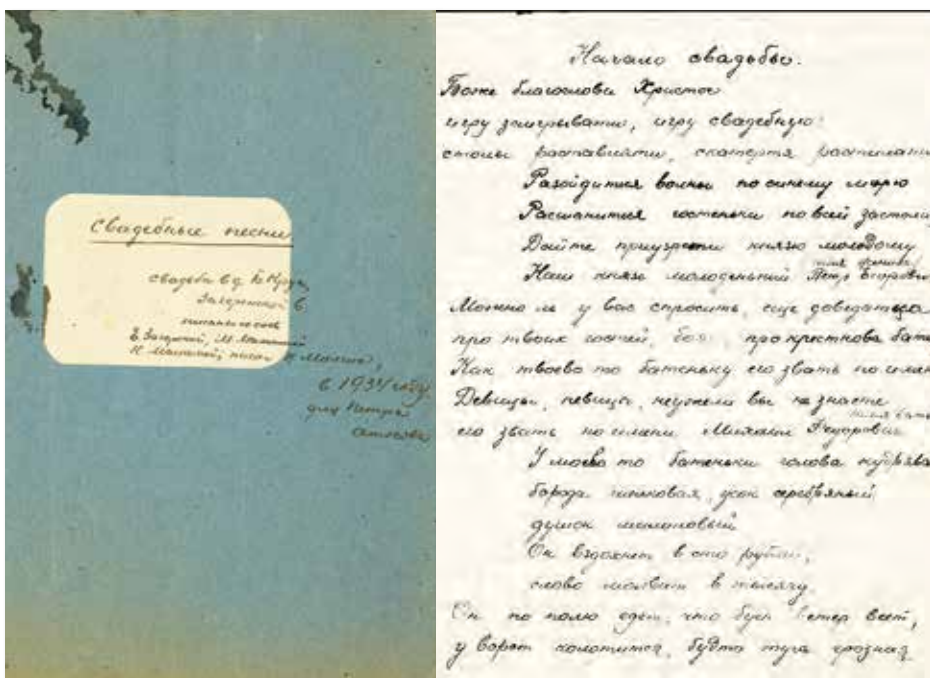 Свадебные песни
свадьба в д. Б. Круг,
Загарской в.
Е. Загарский, М.
в 1934 году
для Петра
Начало свадьбы.
Боже благослови Христос
игру заигрывати, игру свадебную
столы раставляти, скатертя растилати
Разойдитися волны по синему морю
Расшанитися гостеньки по всей застоли
Дайте приузрети князю молодому
имя жениха
Наш князь молоденький Петр Егорович
Можно ли у вас спросить, еще доведатьса
про твоих гостей, бояр, про крестнова бать
Как твоево то батеньку его звать по имен
Девицы, певицы, неужели вы не знаете
имя бат
его звать по имени Михаил Федорович
У моево то батеньки голова кудрява
борода шелковая, усок серебряный
душок малиновый
Он вздохнет в сто рублей,
слово молвит в тысячу.
Он по полю едет, что буен ветер веет,
у ворот колотится, будто туча грозная